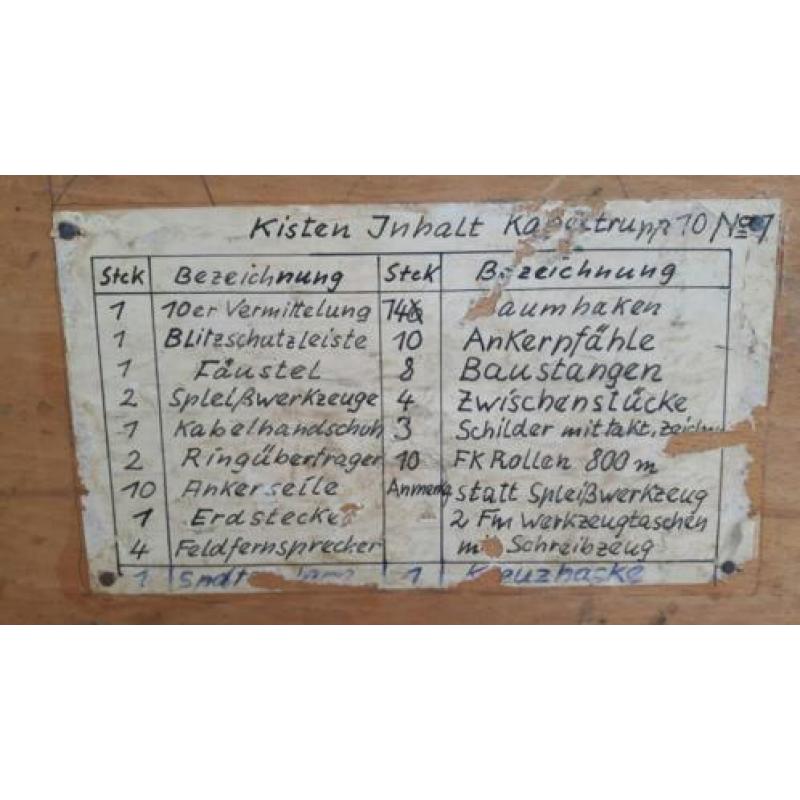 Kisten Inhalt Kabeltrupp 10 No 1
Stck Bezeichnung Stck Bezeichnung
1 10er Vermittelung Baumhaken
1 Blitzschutzleiste 10 Ankerpfähle
1 Fäustel 8 Baustangen
2 Spleißwerkzeuge 4 Zwischenstücke
1 Kabelhandschuh 3 Schilder mit takt. Zeichen
2 Ringübertrager 10 FK Rollen 800 m
10 Ankerseile Anmerg statt Spleißwerkzeug
1 Erdstecker 2 Fm Werkzeugtaschen
4 Feldfernsprecher mit Schreibzeug
1 1 Kreuzhacke